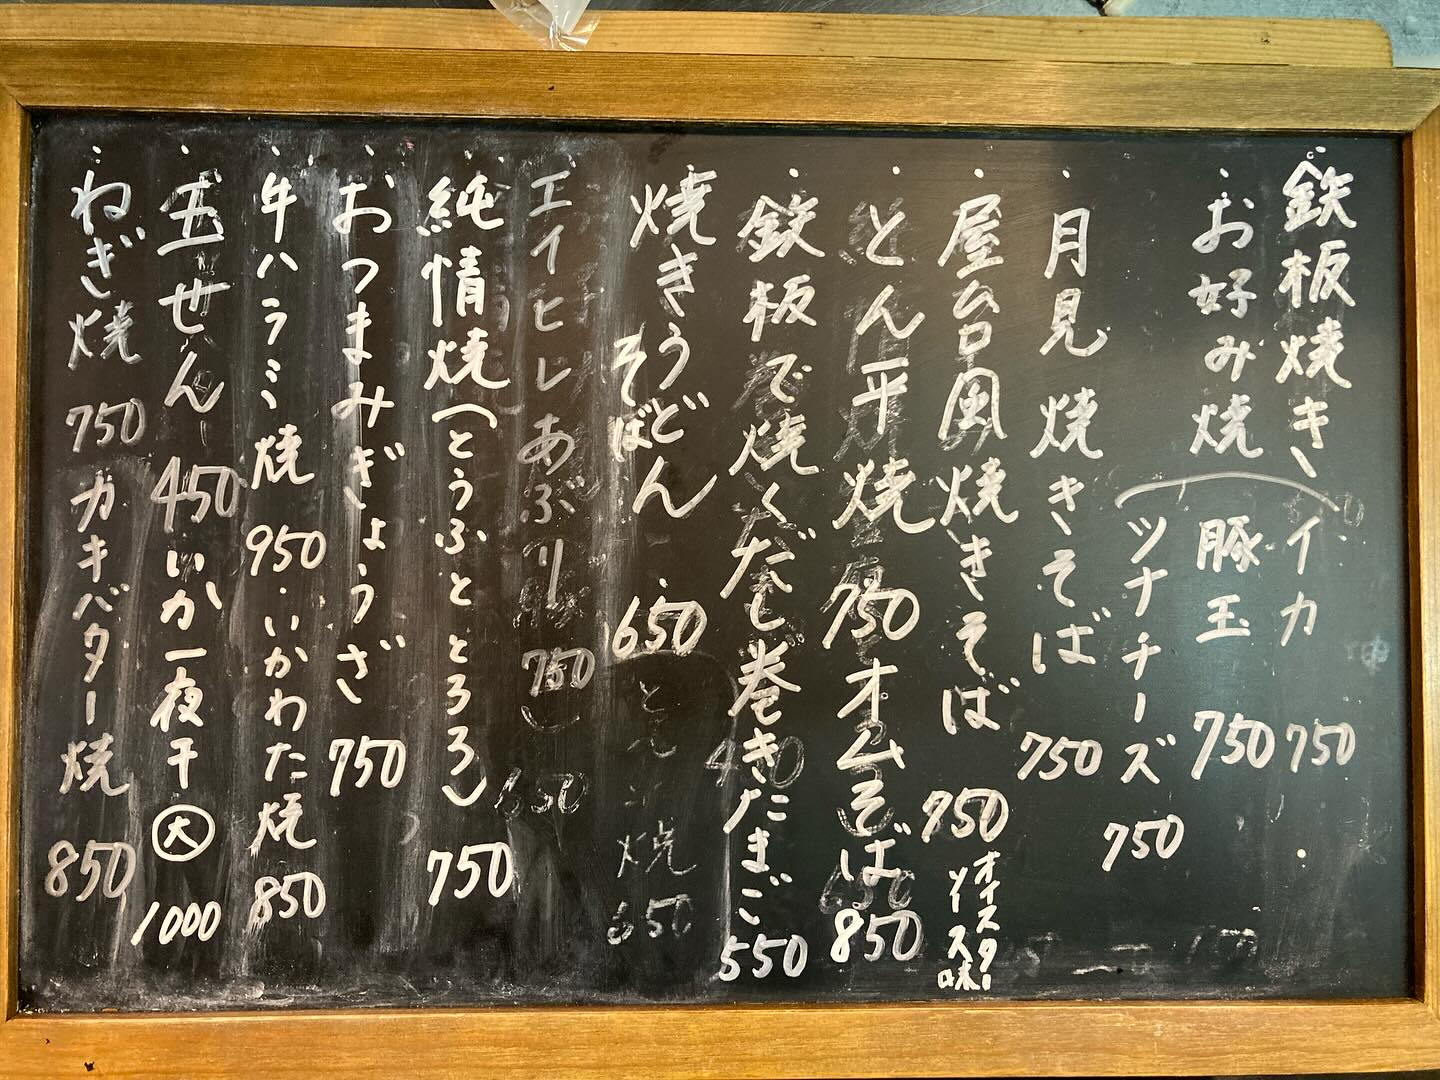 鉄板焼き
お好み焼
イカ 750
豚玉 750
ツナチーズ 750
月見焼きそば 750
屋台風焼きそば 750
オイスターソース味
とん平焼 750
オムそば 850
鉄板で焼くだし巻きたまご 550
焼きうどん
そば 650
エイヒレあぶり 750
純情焼(とうふととろろ) 750
おつまみぎょうざ 750
牛ハラミ焼 950
いかわた焼 850
玉せん 450
いか一夜干 大 1000
ねぎ焼 750
カキバター焼 850